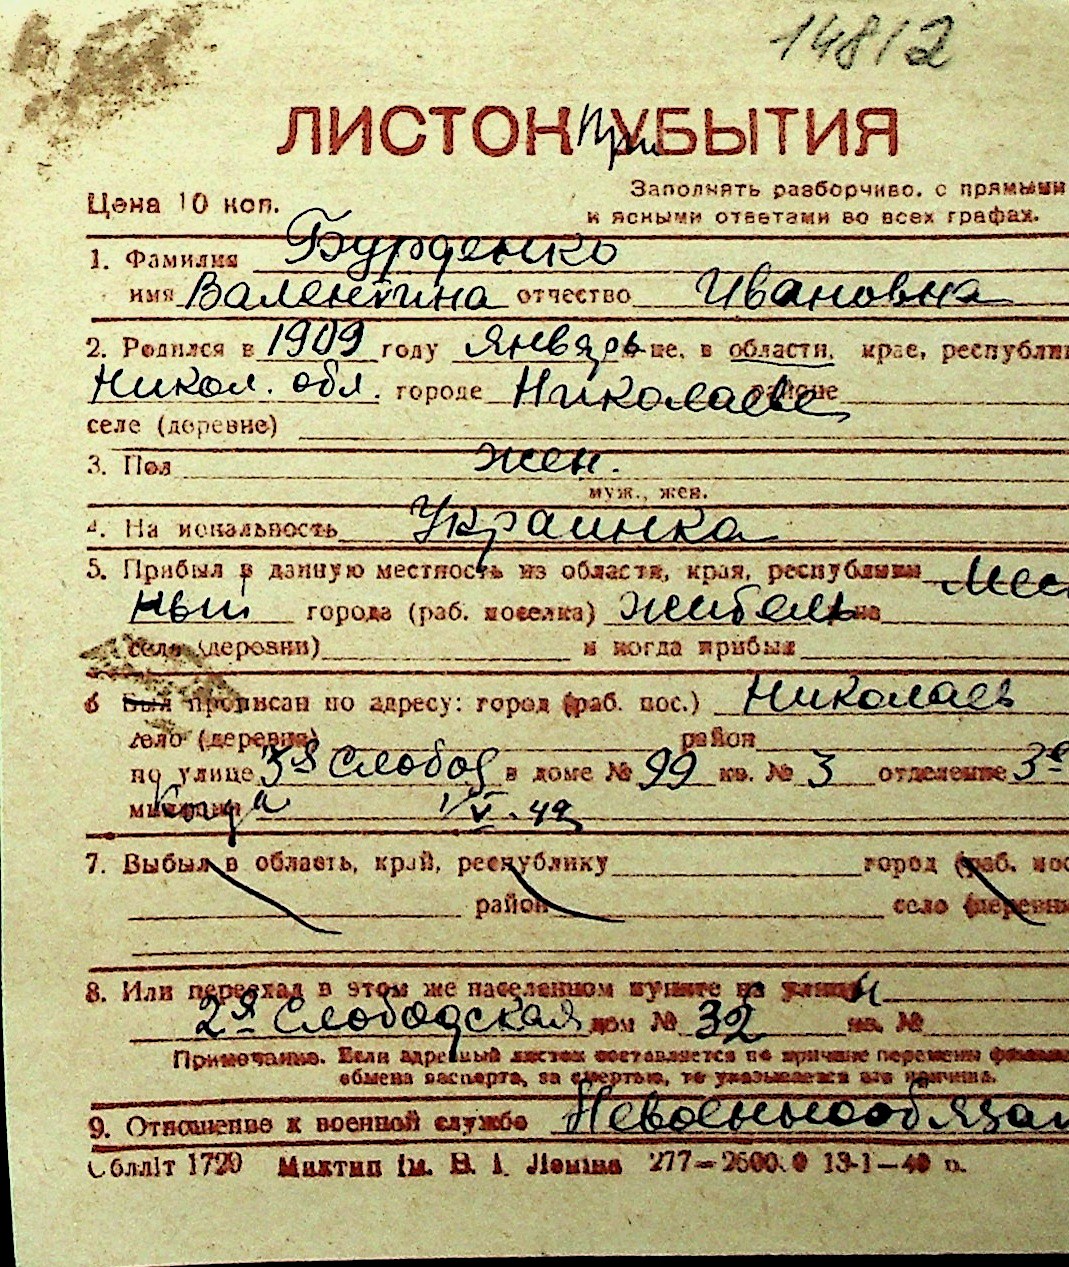 14812
ЛИСТОК При УБЫТИЯ
Цена 10 коп.
Заполнять разборчиво, с прямыми
и ясными ответами во всех графах.
1. Фамилия Бурденко
имя Валентина отчество Ивановна
2. Родился в 1909 году январь це, в области, крае, республи
Никол. обл. городе Николаеве районе
селе (деревне)
3. Пол жен.
муж., жен.
4. На иональность Украинка
5. Прибыл в данную местность из области, края, республики Мест
ный города (раб. поселка) житель
села (деревни) и когда прибыл
6 Был прописан по адресу: город (раб. пос.) Николаев
село (деревня) район
по улице 3я Слобод в доме № 99 кв. № 3 отделение 3е
Когда 1/V.49
7. Выбыл в область, край, республику город (раб. пос
район село (деревня
8. Или переехал в этом же населенном пункте на улицы
2я Слободская дом № 32 кв. №
Примечание. Если адресный листок составляется по причине перемены фамили
обмена паспорта, за смертью, то указывается эта причина.
9. Отношение к военной службе Невоеннообязан
Обlліт 1720 Миктип ім. В. І. Леніна 277—2600.0 13-1—49 р.